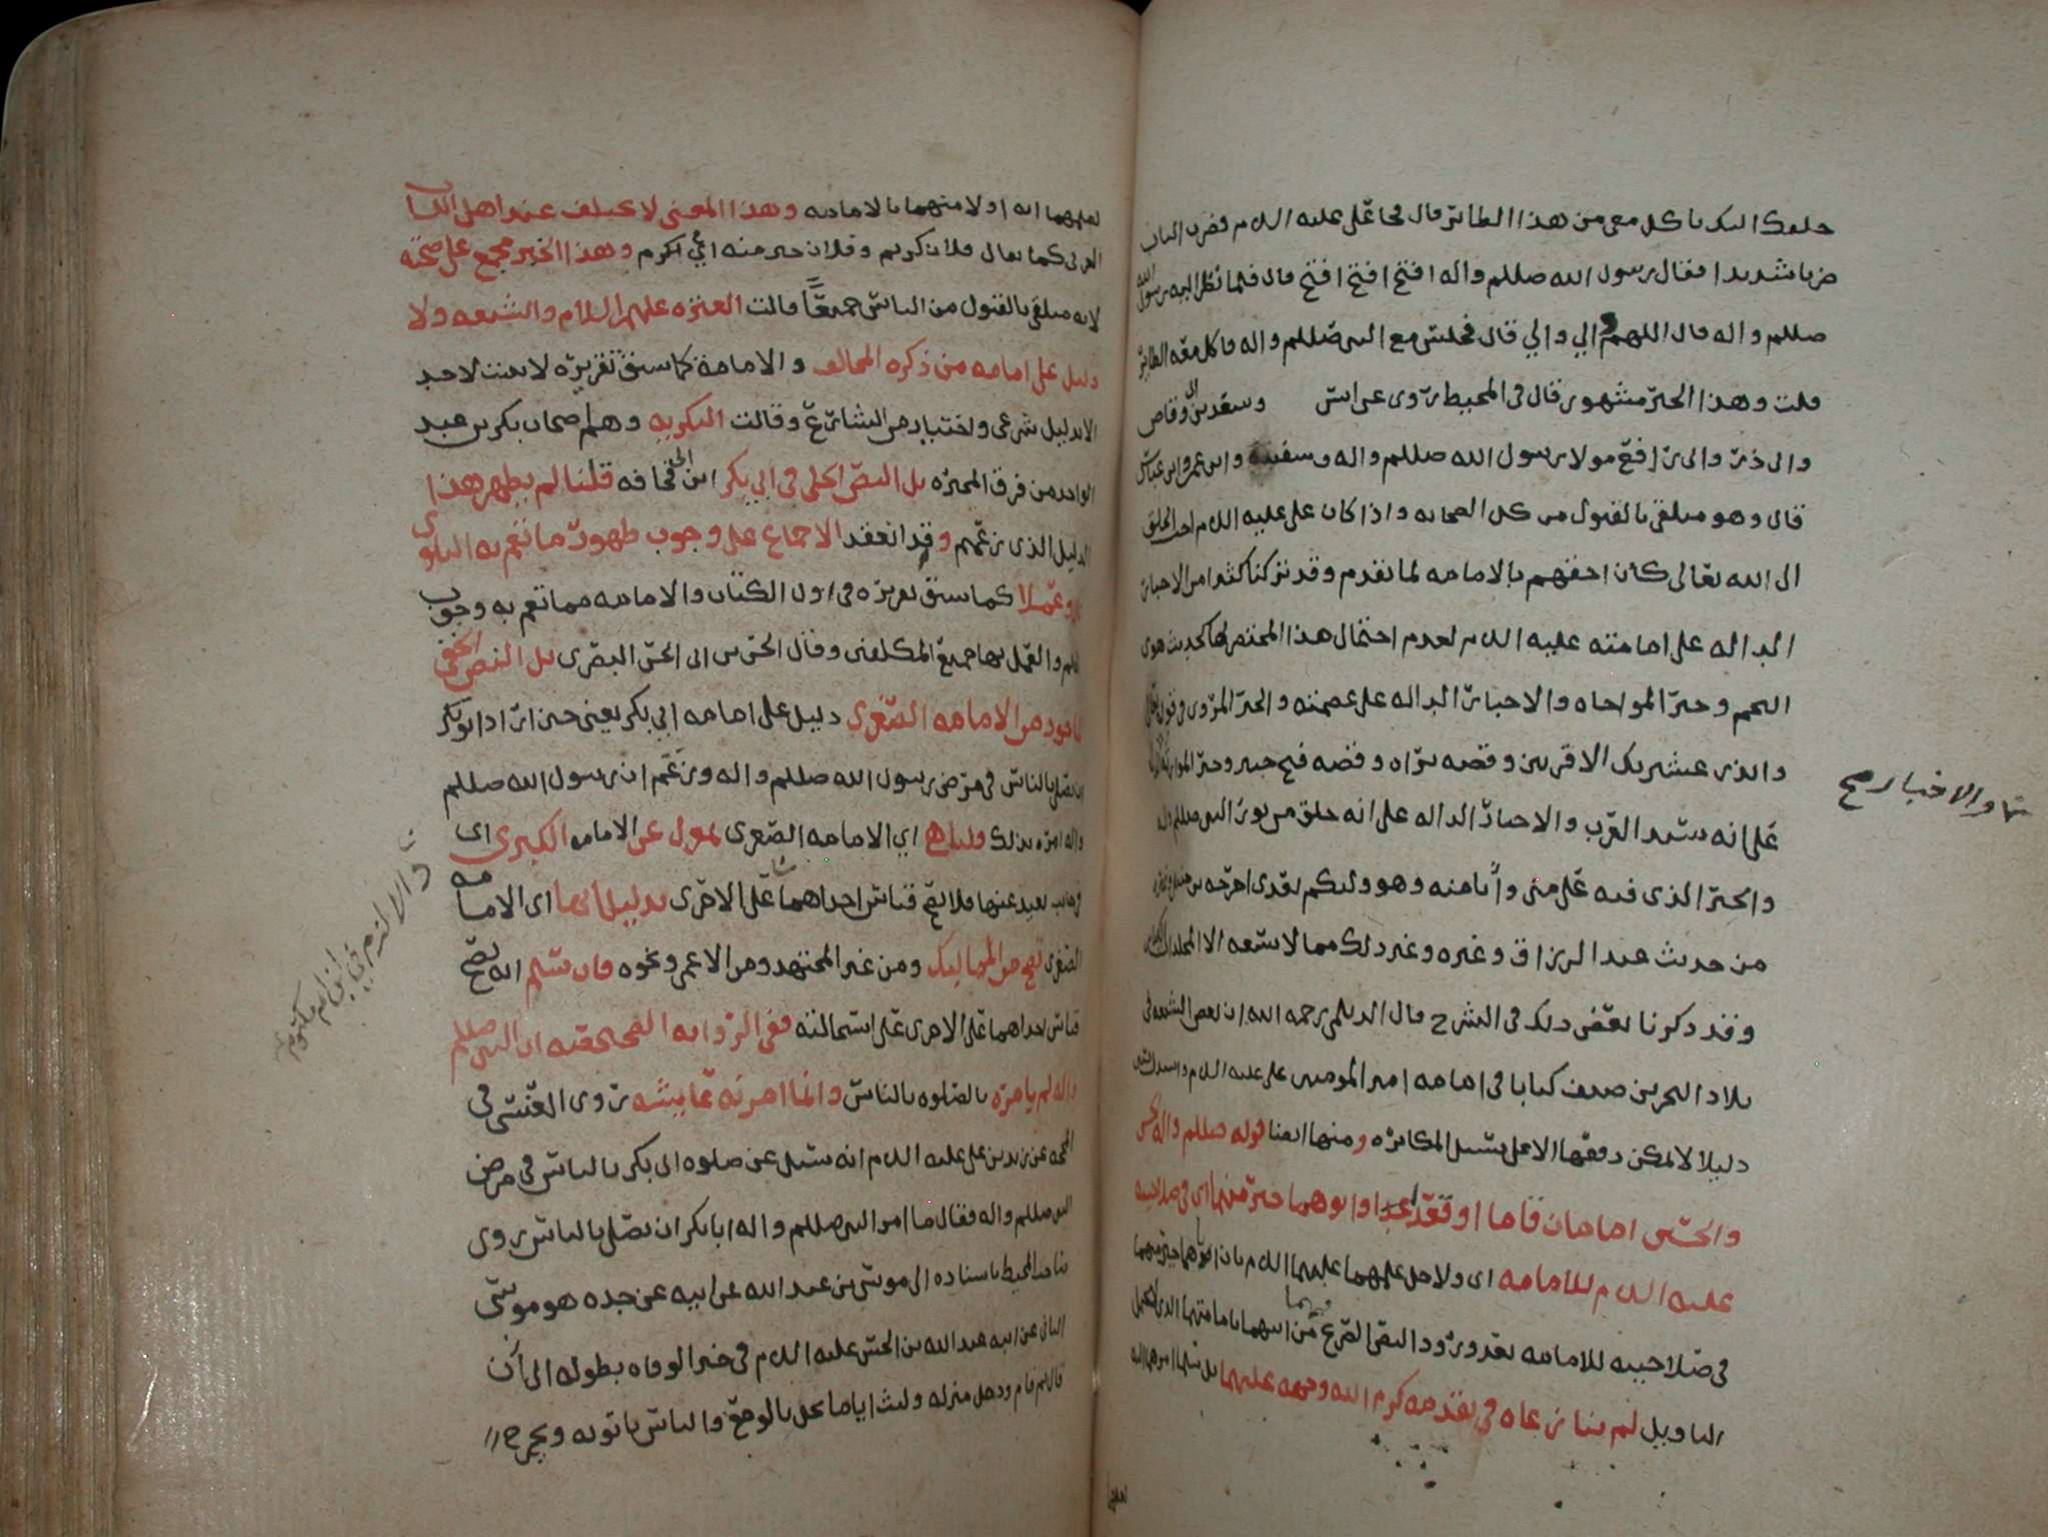 خلقك اليك ياكل معي من هذا الطائر قال فجا علي عليه السلام فضرب الباب
ضربا شديدا فقال رسول الله صللم واله افتح افتح افتح قال فلما نظر اليه رسول الله
صللم واله قال اللهم والي والي قال فجلس مع النبي صللم واله فاكل معه الطائر
قلت وهذا الخبر مشهور قال في المحيط روى عن انس وسعد بن ابي وقاص
وابي ذر وابي رافع مولا رسول الله صللم واله وسفينه وابن عمر وابن عباس
قال وهو متلقى بالقبول من كل الصحابه واذا كان علي عليه السلام احب الخلق
الى الله تعالى كان احقهم بالامامه لما تقدم وقد تركنا كثيرا من الاخبار
الداله على امامته عليه السلام لعدم احتمال هذا المختصر لها كحديث هوي
النجم وخبر المواخاه والاخبار الداله على عصمته والخبر المروي في قوله تعالى
وانذر عشيرتك الاقربين وقصه براه وقصه فتح خيبر وخبر
على انه سيد العرب والاخبار الداله على انه خلق من نور النبي صللم واله
والخبر الذي فيه علي مني وانا منه وهو وليكم بعدي اخرجه
من حديث عبد الرزاق وغيره وغير ذلك مما لا يتسعه الا المجلدات
وقد ذكرنا بعض ذلك في الشرح قال الديلمي رحمه الله ان بعض الشيعه في
بلاد البحرين صنف كتابا في امامه امير المومنين علي عليه السلام
دليلا لا يمكن دفعها الا على سبيل المكابره ومنها ايضا قوله صللم واله الحسن
والحسين امامان قاما او قعدا وابوهما خير منهما اي في صلاحيته
عليه السلام للامامه اي ولاجل عليهما السلام بان اباهما خير منهما
في صلاحيته للامامه بعد ورود النص الصريح من ابيهما بامامتهما الذي لا يحتمل
التاويل لم ينازعاه في تقدمه كرم الله وجهه عليهما
والاخبار صح
لعلمهما انه اولا منهما بالامامه وهذا المعنى لا يختلف عند اهل اللسان
العربي كما يقال فلان كريم وفلان خير منه اي اكرم وهذا الخبر مجمع على صحته
لانه متلقى بالقبول من الناس جميعا قالت العتره عليهم السلام والشيعه ولا
دليل على امامه من ذكره المخالف والامامة كما سبق تقريره لا تثبت لاحد
الا بدليل شرعي واختيار من الشارع وقالت البكريه وهم اصحاب بكر بن عبد
الواحد من فرق المجبره بل النص الجلي في ابي بكر ابن ابي قحافه قلنا لم يظهر هذا
الدليل الذي زعمتم وقد انعقد الاجماع على وجوب ظهور ما تعم به البلوى
وعملا كما سبق تقريره في اول الكتاب والامامه مما تعم به وجوب
العلم والعمل بها جميع المكلفين وقال الحسن بن ابي الحسن البصري بل النص الخفي
الماخوذ من الامامه الصغرى دليل على امامه ابي بكر يعني حين اراد ابو بكر
ان يصلي بالناس في مرض رسول الله صللم واله وزعم ان رسول الله صللم
واله امره بذلك قلنا هي اي الامامه الصغرى بمعزل عن الامامه الكبرى اي
في جانب بعيد عنها فلا يصح قياس احداهما على الاخرى بدليل انها اي الامامه
الصغرى تصح من المماليك ومن غير المجتهد ومن الاعمى ونحوه فان سلم انه يصح
قياس احداهما على الاخرى على استحالته ففي الروايه الصحيحه ان النبي صللم
واله لم يامره بالصلوه بالناس وانما امرته عايشه روى العنسي في
المحجه عن زيد بن علي عليه السلام انه سئل عن صلوه ابي بكر بالناس في مرض
النبي صللم واله فقال ما امر النبي صللم واله ابا بكر ان يصلي بالناس وروى
صاحب المحيط باسناده الى موسى بن عبد الله عن ابيه عن جده هو موسى
الثاني عن ابيه عبد الله بن الحسن عليه السلام في خبر الوفاه بطوله الى ان
قال ثم قام ودخل منزله ولبث اياما يجد بالوجع والناس ياتونه ويخرج